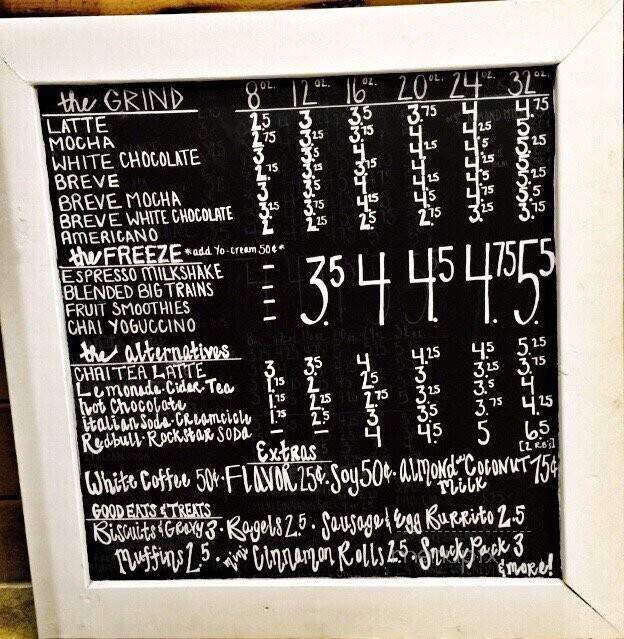 the GRIND 8 oz. 12 oz. 16 oz. 20 oz. 24 oz. 32 oz.
LATTE 2.5 3 3.5 3.75 4 4.75
MOCHA 2.75 3.25 3.75 4 4.25 5
WHITE CHOCOLATE 3 3.5 4 4.25 4.5 5.25
BREVE
BREVE MOCHA
BREVE WHITE CHOCOLATE
AMERICANO 2 2.25 2.5 2.75 3.25 3.5
the FREEZE *add Yo-cream 50¢*
ESPRESSO MILKSHAKE -
BLENDED BIG TRAINS -
FRUIT SMOOTHIES -
CHAI YOGUCCINO -
3.5 4 4.5 4.75 5.5
the alternatives
CHAI TEA LATTE 3 3.5 4 4.25 4.5 5.25
Lemonade·Cider·Tea 1.75 2 2.5 3 3.25 3.75
Hot Chocolate 1.75 2.25 2.75 3.25 3.5 4
Italian Soda·Creamcicle 1.75 2.5 3 3.5 3.75 4.25
Redbull·Rockstar SODA - - 4 4.5 5 6.5
[2 R.B's]
Extras
White Coffee 50¢·FLAVOR 25¢·Soy 50¢·ALMOND or COCONUT MILK 75¢
GOOD EATS & TREATS
Biscuits & Gravy 3·Bagels 2.5·Sausage & Egg Burrito 2.5
Muffins 2.5·mini Cinnamon Rolls 2.5·Snack Pack 3
& more!